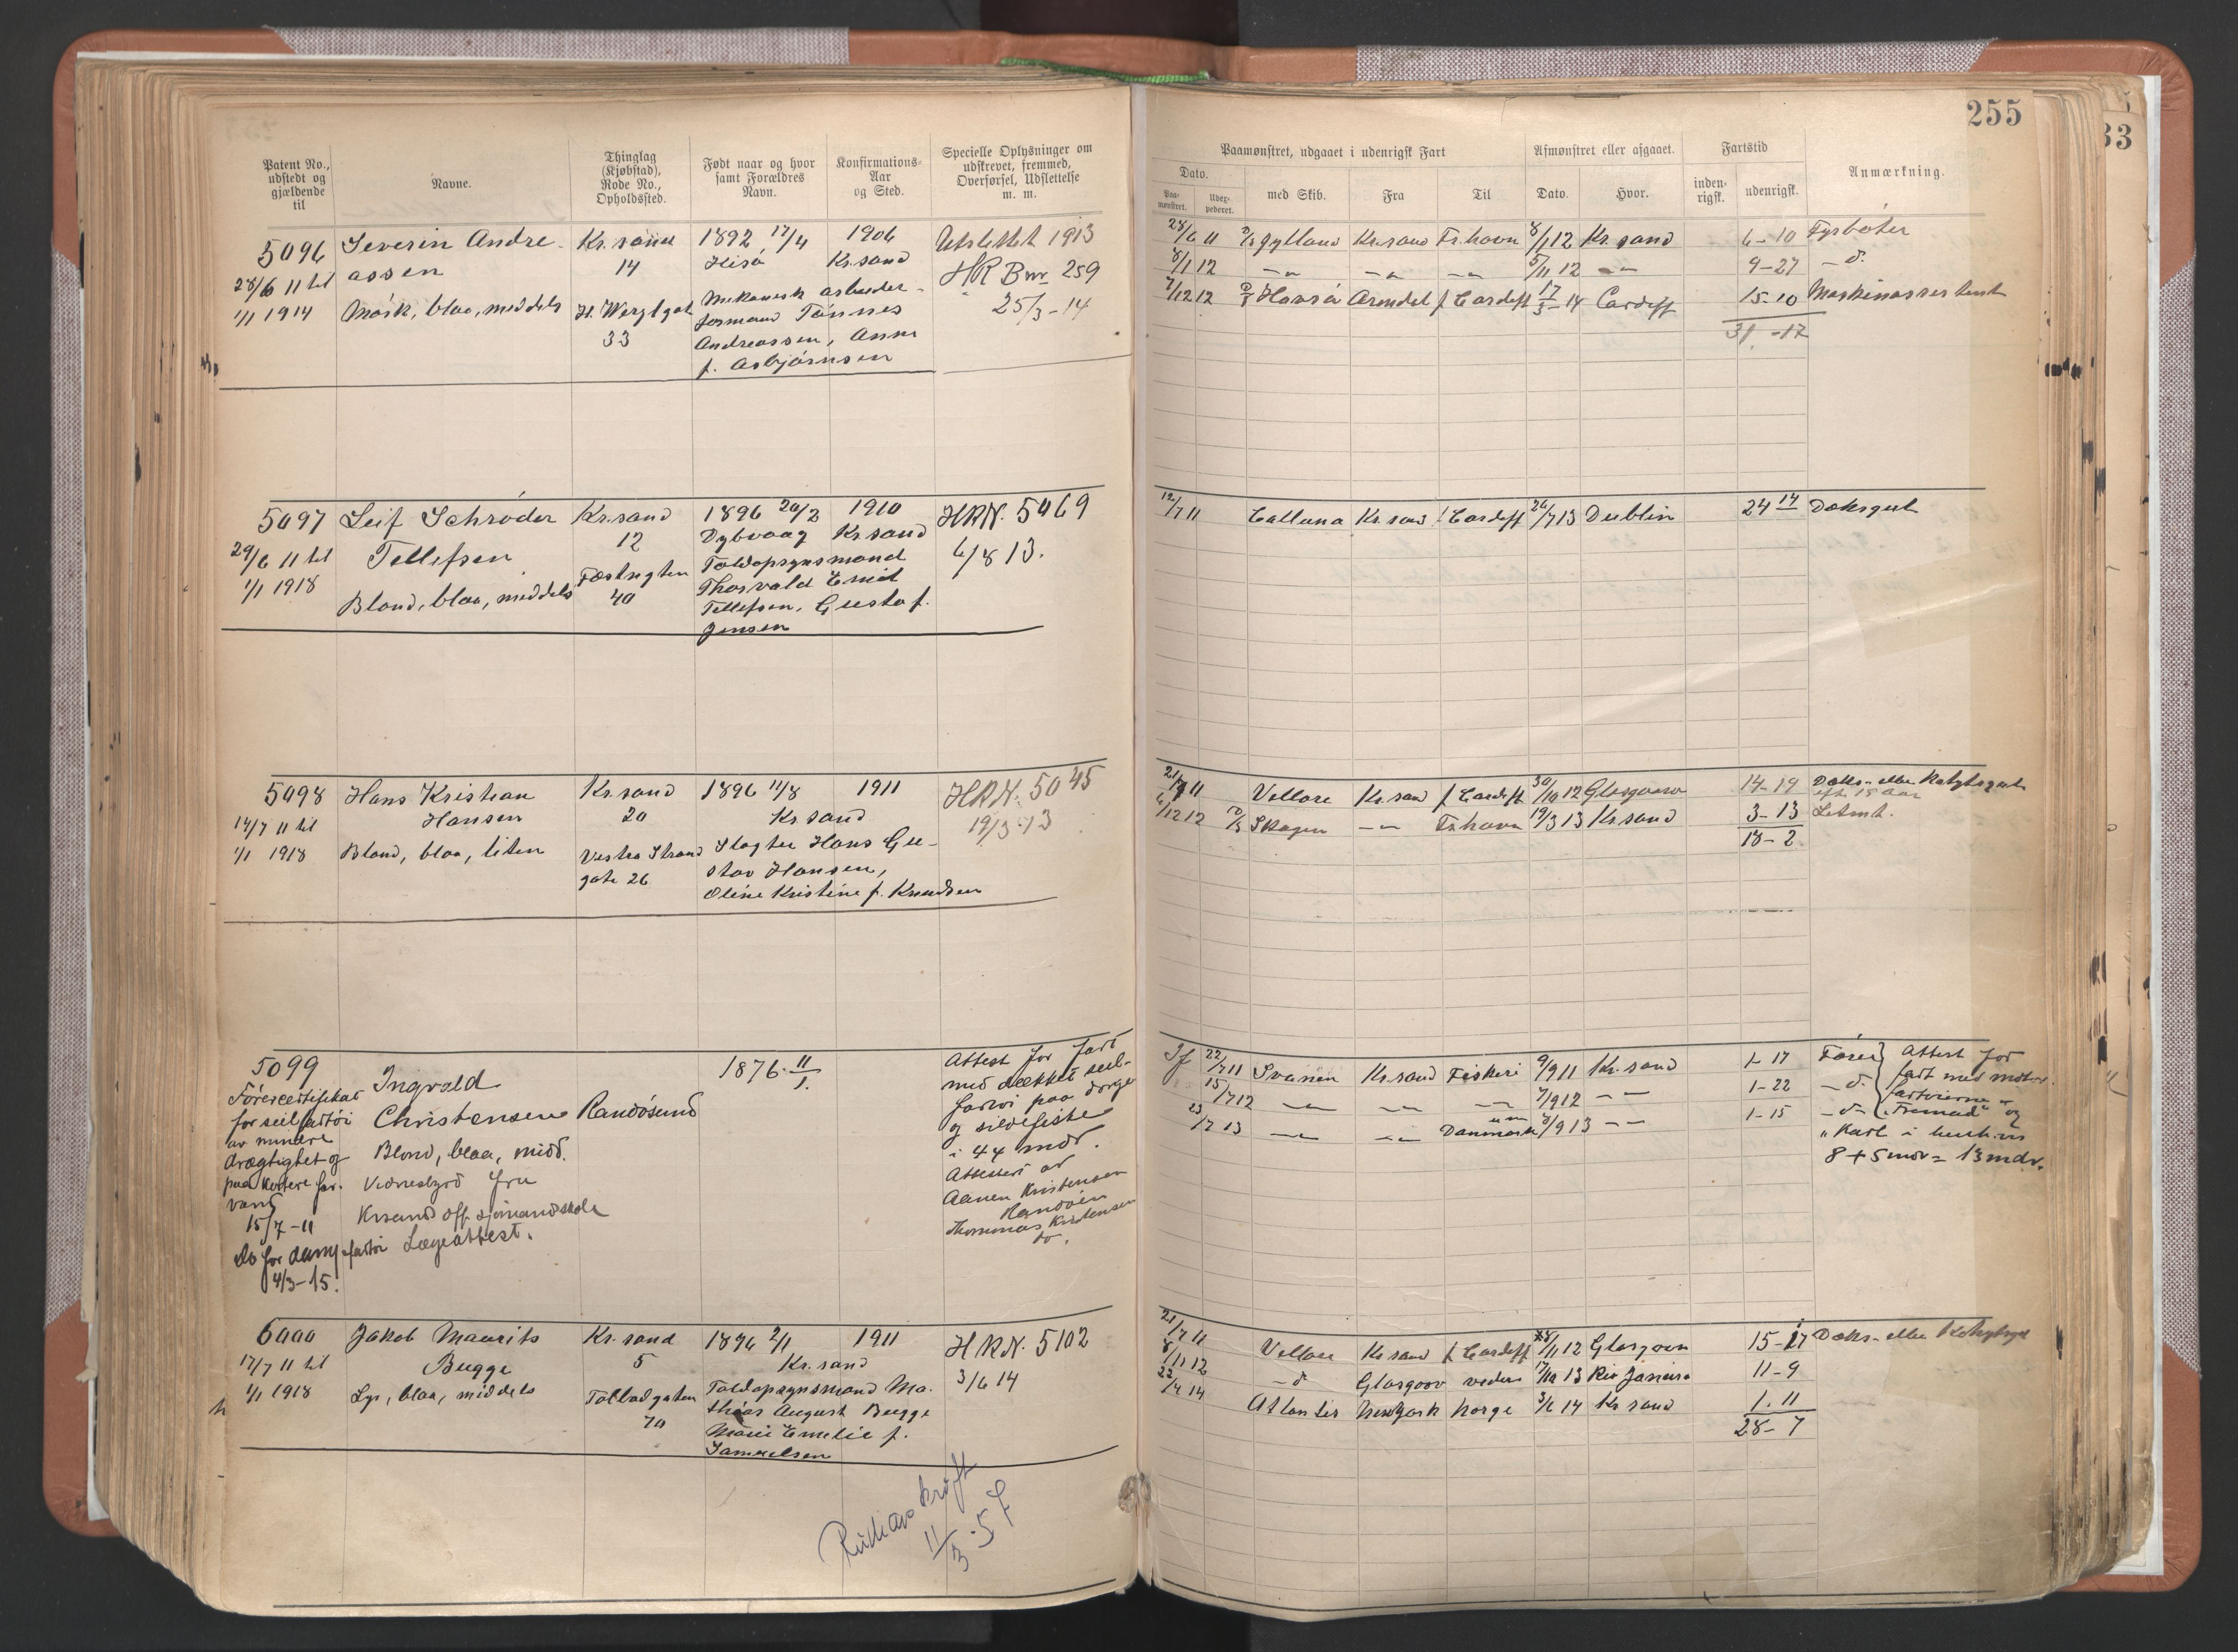 255
33
Patent No., udstedt og gjældende til
Navne.
Thinglag (Kjøbstad), Rode No., Opholdssted.
Født naar og hvor samt Forældres Navn.
Konfirmations-Aar og Sted.
Specielle Oplysninger om udskrevet, fremmed, Overførsel, Udslettelse m. m.
Paamønstret, udgaaet i udenrigsk Fart
Afmønstret eller afgaaet.
Fartstid
Anmærkning.
Dato.
Paamønstret.
med Skib.
Fra
Til
Dato.
Hvor.
indenrigsk.
udenrigsk.
5096 Severin Andre- Kr.sand 1892 17/4 1906 Utslettet 1913
28/6 11 til assen 14 Hisø Kr.sand HR Bnr 259
1/1 1914 Mørk, blaa, middels H. Wergl.gate Mekanisk arbeider- 25/3-14
33 formand Tønnes
Andreassen, Anne
f. Asbjørnsen
28/6 11 Jylland Kr.sand Fr.havn 8/1 12 Kr.sand 6-10 Fyrbøter
8/1 12 -"- -"- -"- 5/11 12 -"- 9-27 -d.
7/12 12 Havsø Arendal f Cardiff 17/3-14 Cardiff 15-10 Maskinassistent
31-17
5097 Leif Schrøder Kr.sand 1896 20/2 1910 HRN. 5469
29/6 11 til Tellefsen 12 Dybvaag Kr.sand 6/8 13.
1/1 1918 Blond, blaa, middels Fæstngten Toldopsynsmand
40 Thorvald Emil
Tellefsen, Gusta f.
Jensen
12/7 11 Calluna Kr.sand f Cardiff 26/7 13 Dublin 24 14 Dæksgut
5098 Hans Kristian Kr.sand 1896 11/8 1911 HRN. 5045
14/7 11 til Hansen 20 Kr sand 19/3-13
1/1 1918 Blond, blaa, liten Vestre Strand Slagter Hans Gu-
gate 26 stav Hansen,
Oline Kristine f. Knudsen
21/7 11 Vellore Kr.sand f Cardiff 30/10 12 Glasgow 14-19 Dæks- eller Kahytsgut
eft 15 aar
6/12 12 Skagen -"- Fr.havn 19/3 13 Kr.sand 3-13 Letmt.
18-2
5099 Ingvald 1876 11/1. Attest for fart
Førercertifikat Christensen Randøsund med dækket seil-
for seilfartøi Blond, blaa, midd. fartøi paa dorge
av mindre og sildefiske
drægtighet og Vidnesbyrd fra i 44 mdr.
paa kortere far- Krsand off. sjømandsskole Attestert av
vand Lægeattest. Aanen Kristensen
15/7-11 Randøen
do for dampfartøi Thommas Kristensen
4/3-15. do.
22/7 11 Svanen Kr.sand Fiskeri 9/9 11 Kr.sand 1-17 Fører Attest for
fart med motor
15/7 12 -"- -"- -"- 7/9 12 -"- 1-22 -d. fartøierne
23/7 13 -"- -"- Danmark 8/9 13 -"- 1-15 -d- "Fremad" og
"Karl"
8+5 mdr = 13 mdr.
6000 Jakob Maurits Kr.sand 1896 2/1 1911 HRN. 5102
17/7 11 til Bugge 5 Kr.sand 3/6 14
1/1 1918 Lys, blaa, middels Tolbodgaten Toldopsynsmand Ma-
70 thias August Bugge
Marie Emelie f.
Samuelsen
21/7 11 Vellore Kr sand f Cardiff 8/11 12 Glasgow 15-17 Dæks- eller Kahytsgut
8/11 12 -d Glasgow videre 17/10 13 Rio Janeiro 11-9
22/4 14 Atlantis Newyork Norge 3/6 14 Kr sand 1.11
28-7
11/3-57